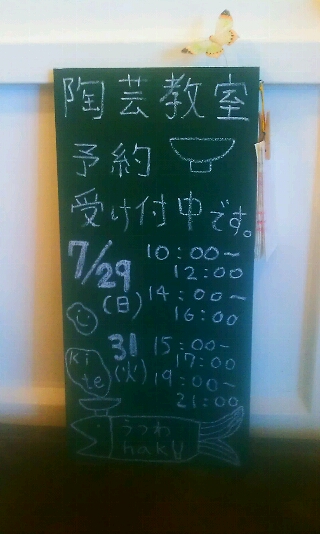 陶芸教室
予約
受け付中です。
7/29
(日)
10:00～
12:00
14:00～
16:00
31
(火)
15:00～
17:00
19:00～
21:00
kite
うつわ
haku